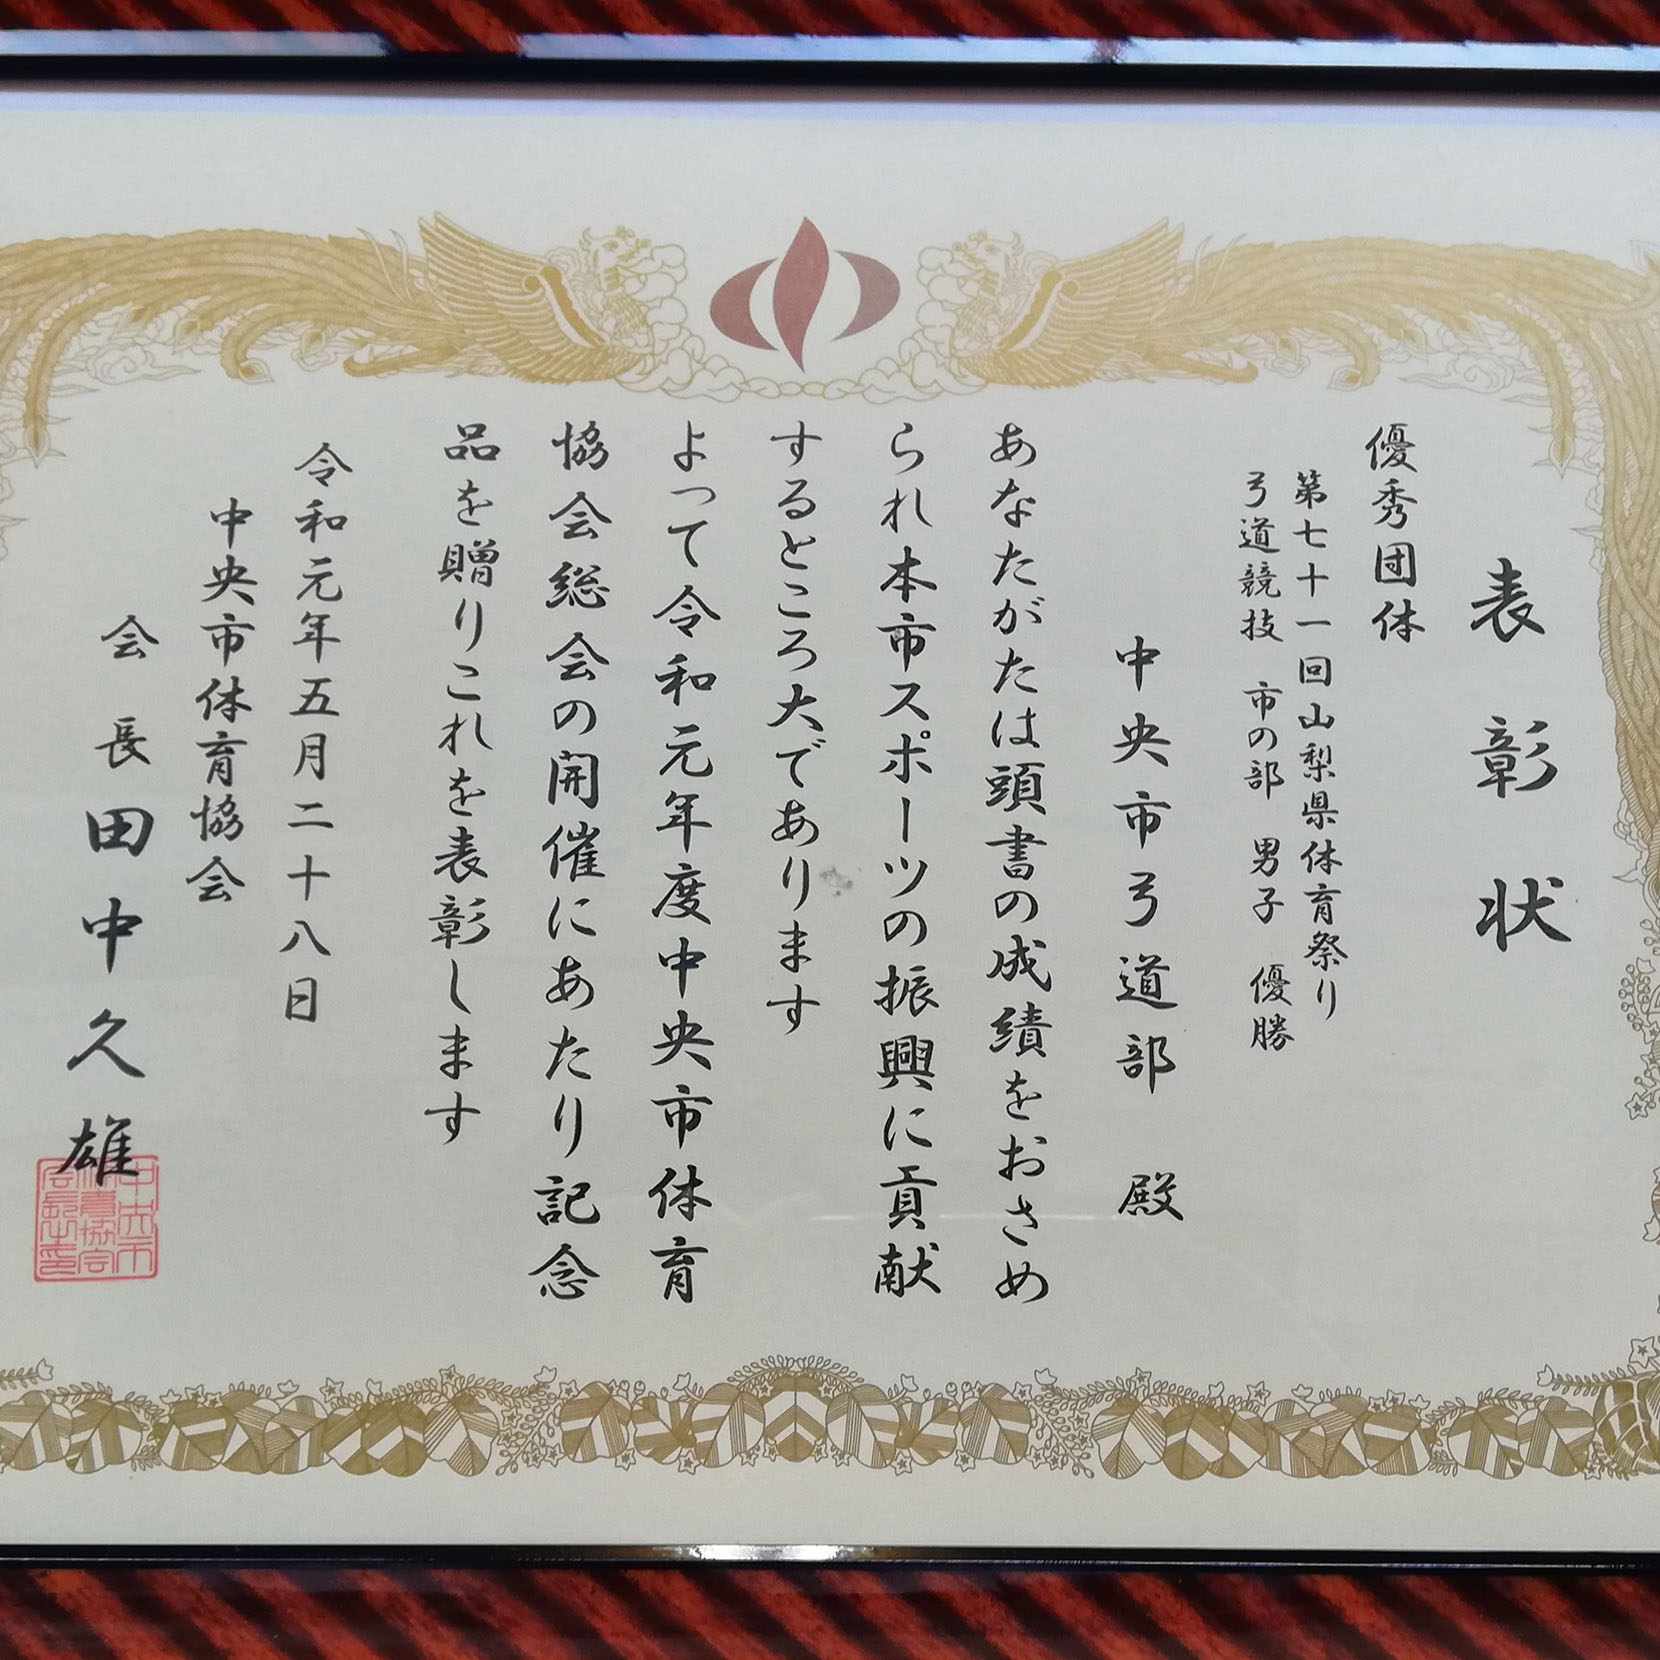 表彰状
優秀団体
第七十一回山梨県体育祭り
弓道競技 市の部 男子 優勝
中央市弓道部 殿
あなたがたは頭書の成績をおさめ
られ本市スポーツの振興に貢献
するところ大であります
よって令和元年度中央市体育
協会総会の開催にあたり記念
品を贈りこれを表彰します
令和元年五月二十八日
中央市体育協会
会長 田中久雄
中央市
体育協会
会長之印